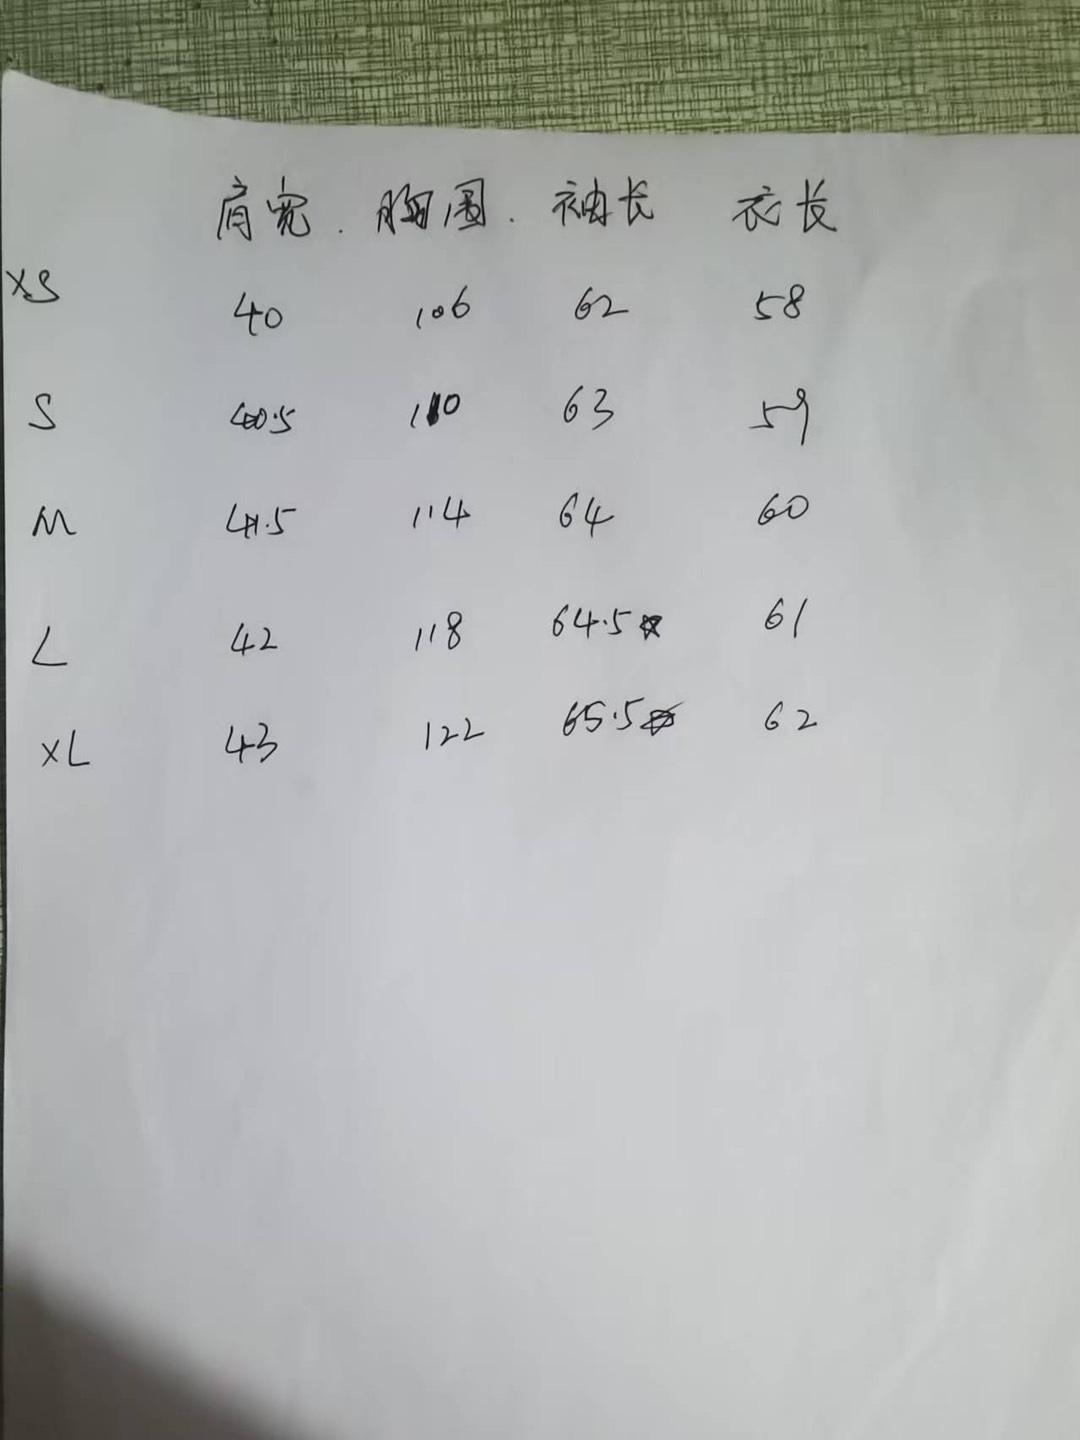 肩宽. 胸围. 袖长 衣长
XS 40 106 62 58
S 40.5 110 63 59
M 41.5 114 64 60
L 42 118 64.5 61
XL 43 122 65.5 62